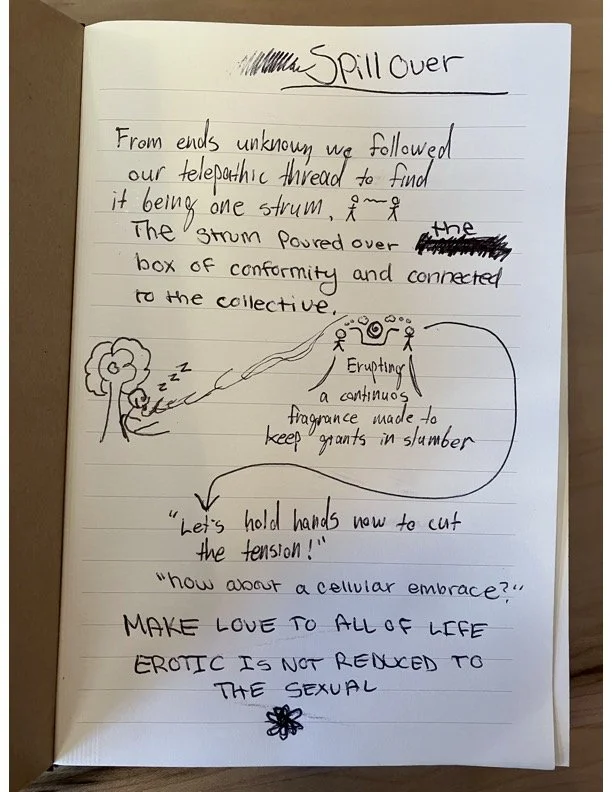 Spill Over
From ends unknown we followed
our telepathic thread to find
it being one strum.
The strum poured over the
box of conformity and connected
to the collective.
z z z
Erupting
a continuos
fragrance made to
keep giants in slumber
"Let's hold hands now to cut
the tension!"
"how about a cellular embrace?"
MAKE LOVE TO ALL OF LIFE
EROTIC IS NOT REDUCED TO
THE SEXUAL